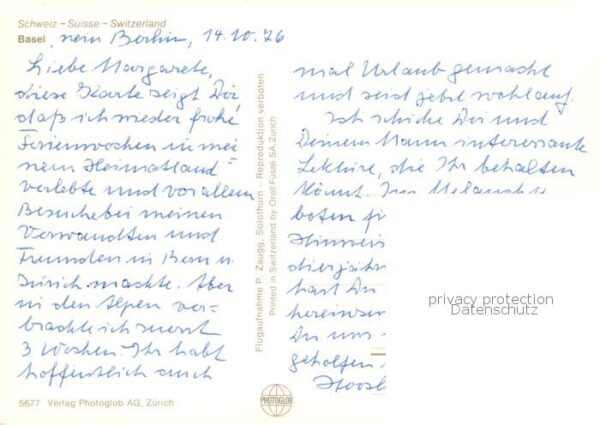 Schweiz – Suisse – Switzerland
Basel, nein Berlin, 14.10.76
Liebe Margarete,
diese Karte zeigt Dir,
daß ich wieder frohe
Ferienwochen in mei=
nem Heimatland
verlebte und vor allem
Besuche bei meinen
Verwandten und
Freunden in Bern u.
Zürich machte. Aber
in den Alpen ver-
brachte ich zuerst
3 Wochen. Ihr habt
hoffentlich auch
5677 Verlag Photoglob AG, Zürich.
Flugaufnahme P. Zaugg, Solothurn - Reproduktion verboten
Printed in Switzerland by Orell Füssli SA, Zürich
PHOTOGLOB
mal Urlaub gemacht
und seid jetzt wohlauf.
Ich schicke Dir und
Deinem Mann interessante
Lektüre, die Ihr behalten
könnt. Im
boten
Hinweis
diesjähr
hast Du
Du uns
geholfen,
privacy protection
Datenschutz